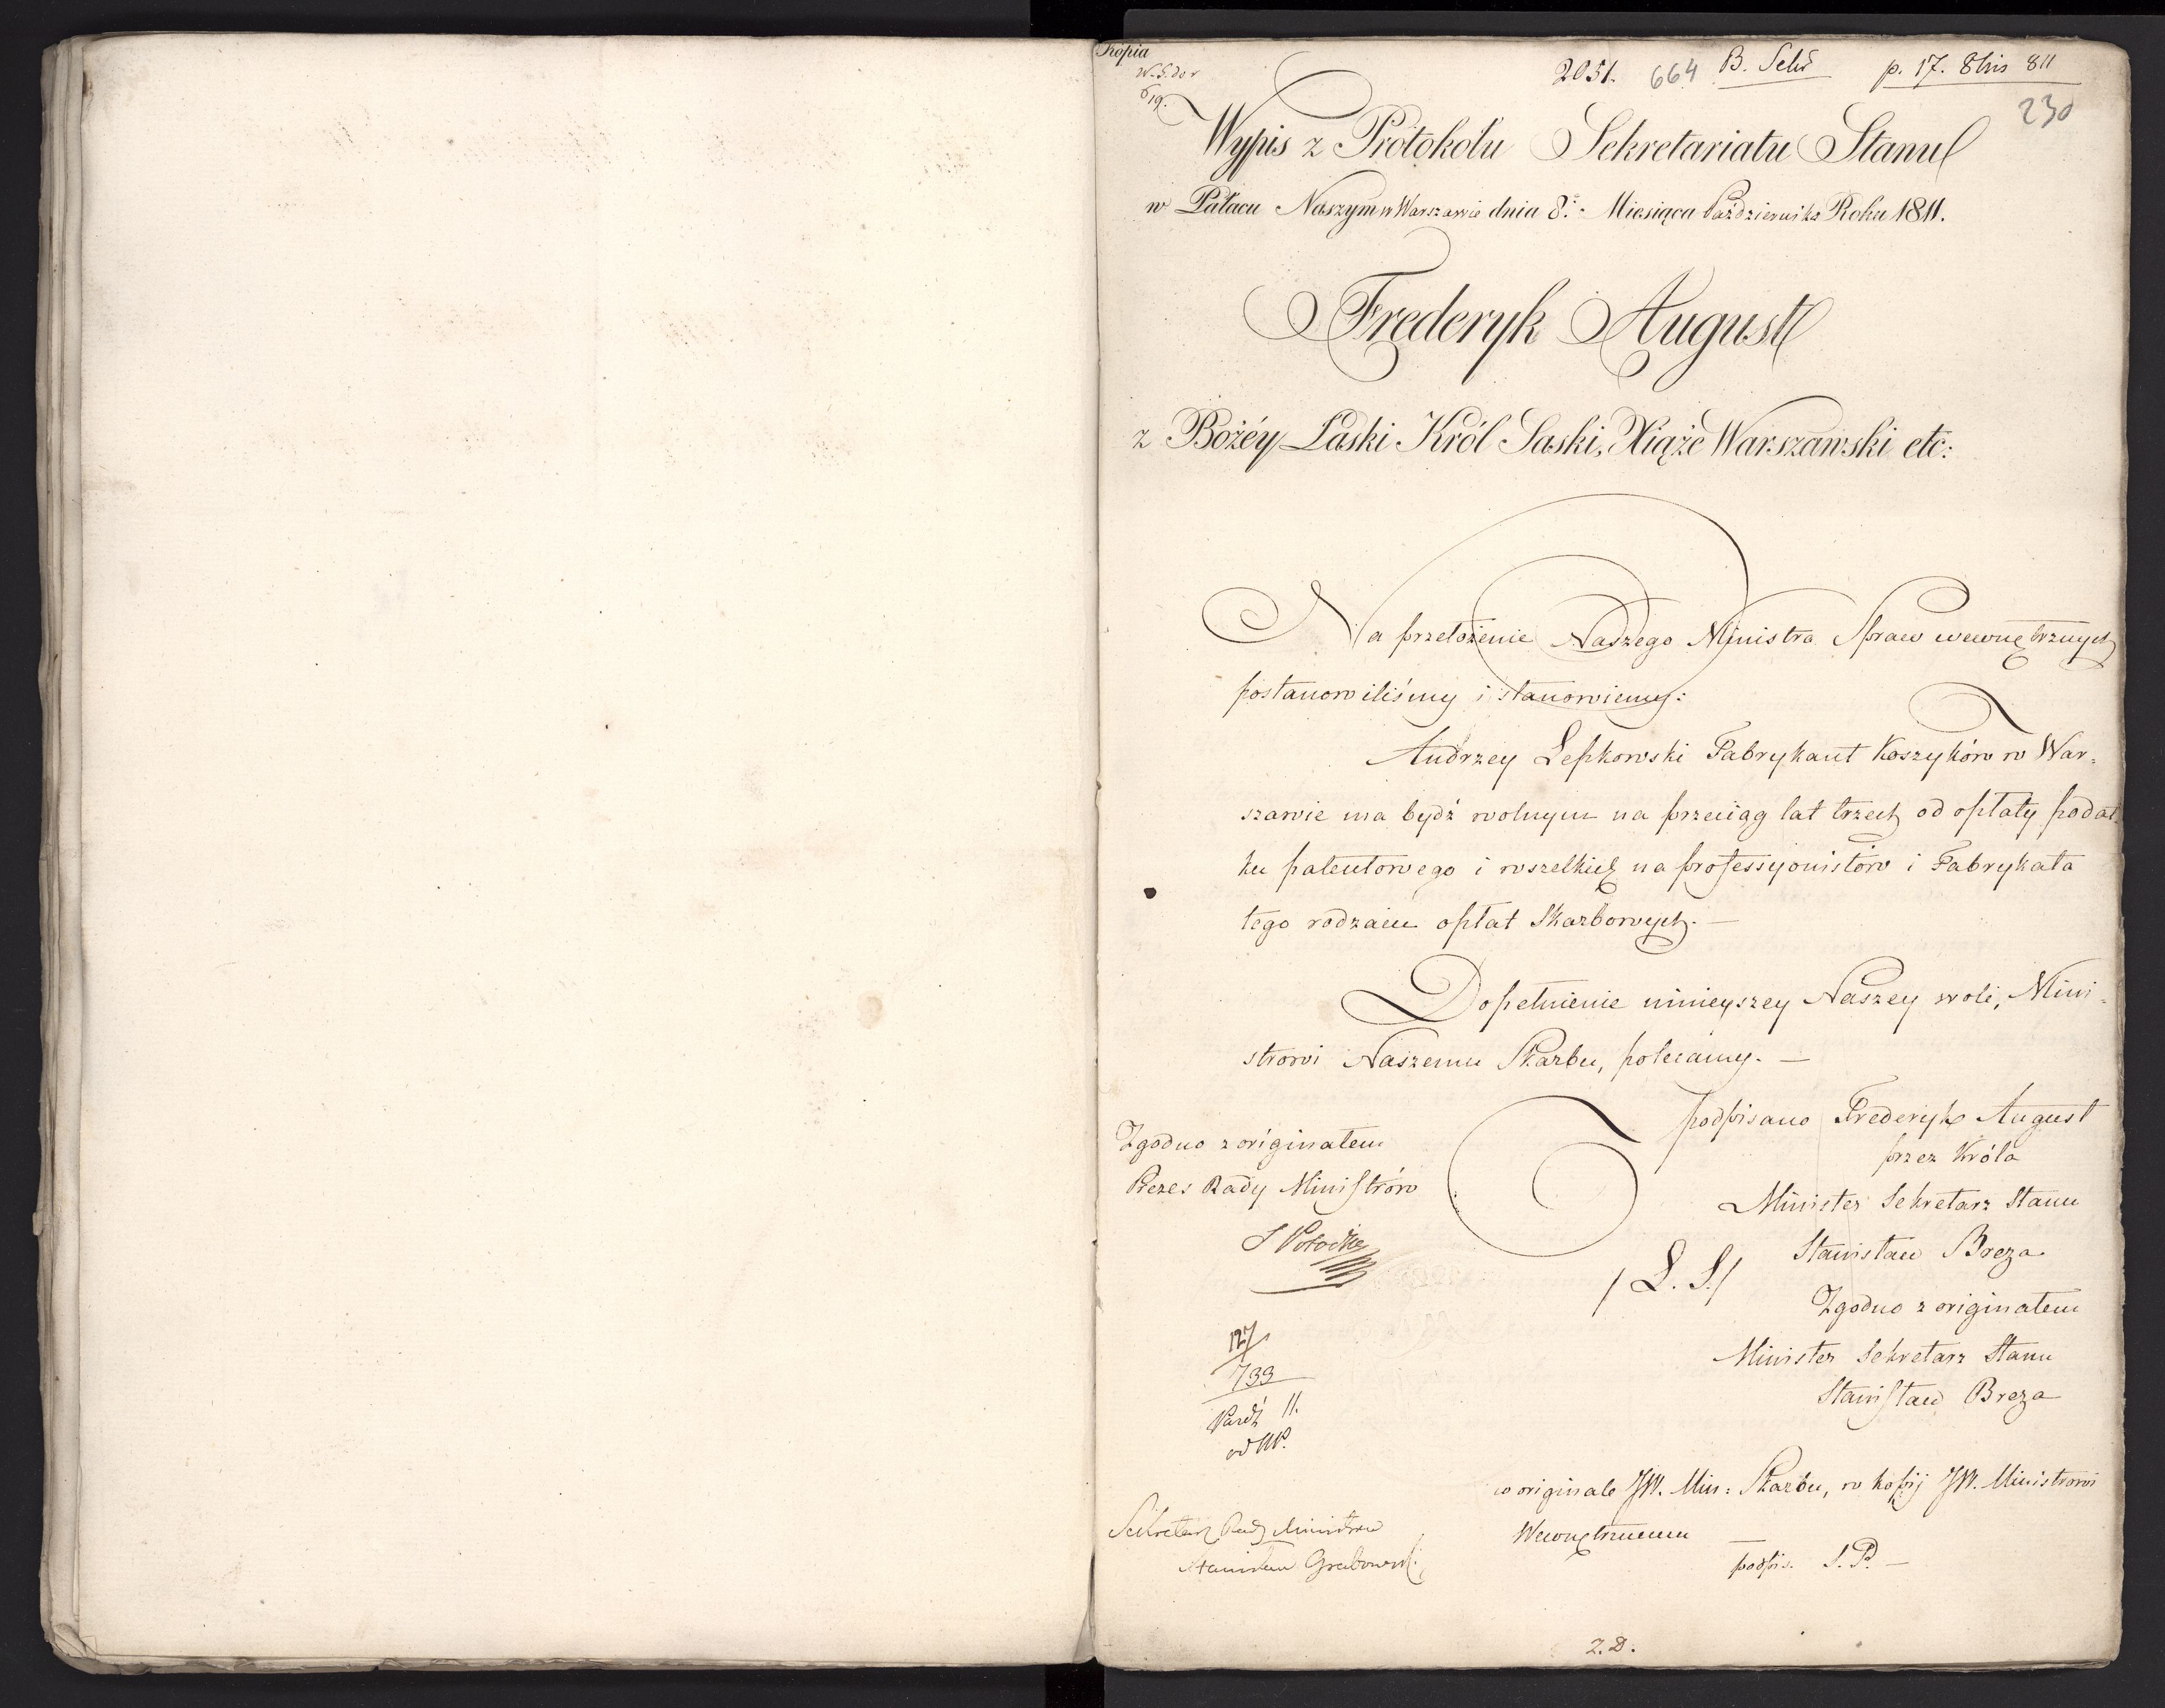 Kopia
2051. 664 p. 17. 8bris 811
230
Wypis z Protokołu Sekretariatu Stanu
w Pałacu Naszym w Warszawie dnia 8. Miesiąca Października Roku 1811.
Frederyk August
z Bożéy Łaski Król Saski, Xiąże Warszawski etc:
Na przełożenie Naszego Ministra Spraw wewnętrznych
postanowiliśmy i stanowiemy:
Andrzey Lepkowski Fabrykant Koszyków w War-
szawie ma bydź wolnym na przeciąg lat trzech od opłaty podat-
ku patentowego i wszelkich na professyonistów i Fabrykata
tego rodzaiu opłat Skarbowych. —
Dopełnienie ninieyszey Naszey woli, Mini-
strowi Naszemu Skarbu, polecamy. —
podpisano Frederyk August
przez Króla
Minister Sekretarz Stanu
Stanisław Breza
Zgodno z originałem
Prezes Rady Ministrów
S Potocki
/ L. S. /
Zgodno z originałem
Minister Sekretarz Stanu
Stanisław Breza
127
733
Pazdź 11.
w originale JW. Min: Skarbu, w kopij JW. Ministrowi
Wewnętrznemu
podpis. S. P. —
Sekretarz Rady Ministrów
Stanisław Grabowski
Z. D.